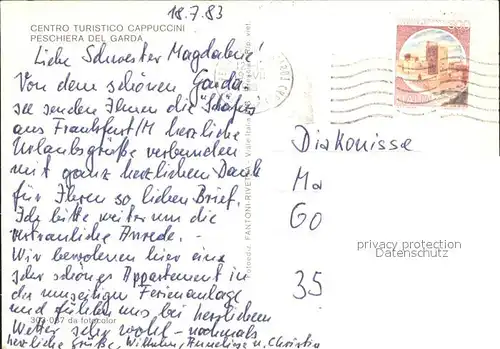 18.7.83
CENTRO TURISTICO CAPPUCCINI
PESCHIERA DEL GARDA
Liebe Schwester Magdalene!
Von dem schönen Garda-
see senden Ihnen die Schäfers
aus Frankfurt/M herzliche
Urlaubsgrüße verbunden
mit ganz herzlichen Dank
für Ihren so lieben Brief.
Ich bitte weiter um die
vertrauliche Anrede. -
Wir bewohnen hier ein
sehr schönes Appartement in
der Ferienanlage
und fühlen uns bei herrlichem
Wetter sehr wohl - nochmals
herzliche Grüße, Wilhelm, Annelise u. Christa
da fotocolor
FANTONI-RIVE
Diakonisse
Ma
Go
35
privacy protection
Datenschutz